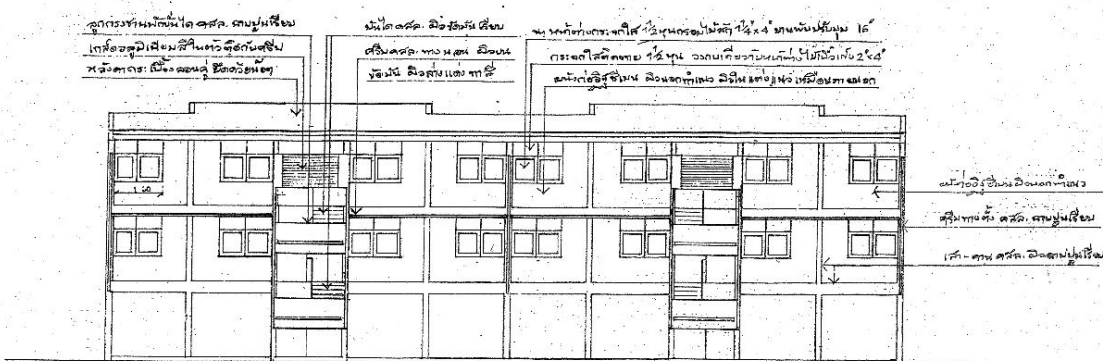 ลูกกรงชานพักบันได คสล. ฉาบปูนเรียบ
เกล็ดอลูมิเนียมสีในตัวติดกับครีบ
หลังคากระเบื้องลอนคู่ ยึดด้วยน๊อต
บันได คสล. ผิวขัดมันเรียบ
ครีบ คสล. ทางนอน ผิวบน
ขัดมัน ผิวล่างแต่ง ทาสี
หน้าต่างกระจกใส 1/2 หุน กรอบไม้สัก 1 1/4"x4" บานพับปรับมุม
กระจกใสติดตาย 1/2 หุน วงกบเดียวกับหน้าต่าง ไม้เนื้อแข็ง 2"x4"
ผนังก่ออิฐซีเมน ผิวนอกทำแนว ผิวในแต่งแนวเหมือนภายนอก
1.60
ผนังก่ออิฐซีเมนผิวนอกทำแนว
ครีบทางตั้ง คสล. ฉาบปูนเรียบ
เสา-คาน คสล. ผิวฉาบปูนเรียบ